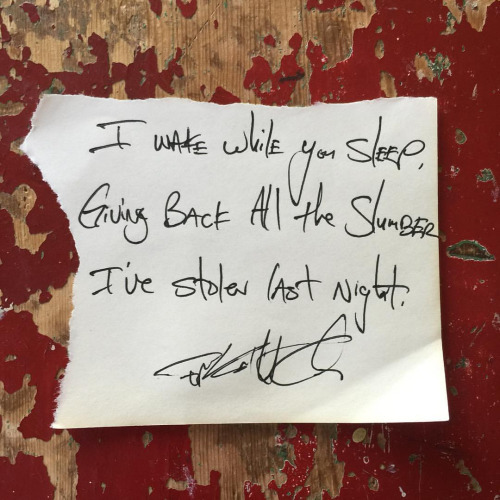 I WAKE while you SLEEP,
Giving BACK All the SlumBER
I've stolen last Night.